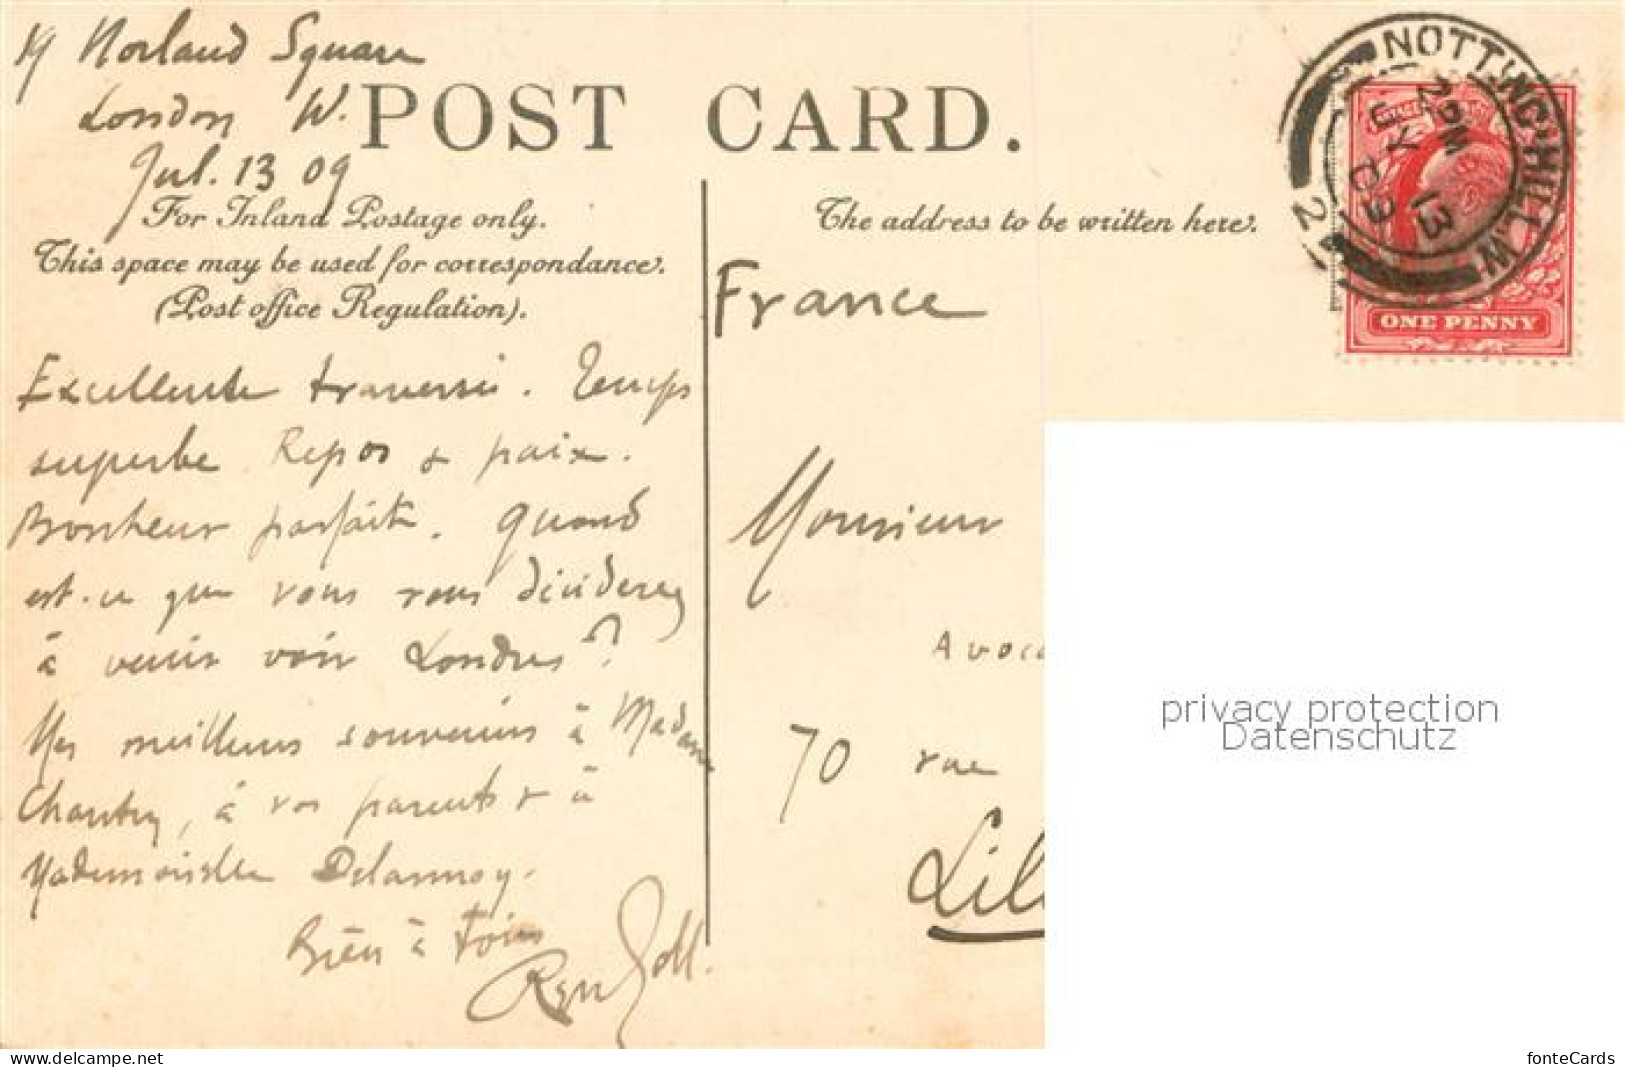 19 Norland Square
London W.
Jul. 13 09
POST CARD.
For Inland Postage only.
This space may be used for correspondance.
(Post office Regulation).
The address to be written here.
NOTTING HILL W.
2 PM
JY 13
09
2
ONE PENNY
Excellente traversée. Temps
superbe Repos & paix.
Bonheur parfait. Quand
est-ce que vous vous déciderez
à venir voir Londres ?
Mes meilleurs souvenirs à Madame
Chantry, à vos parents & à
Mademoiselle Delannoy.
Bien à tous
France
Monsieur
Avoca
70 rue
Lil
privacy protection
Datenschutz
www.delcampe.net
fonteCards